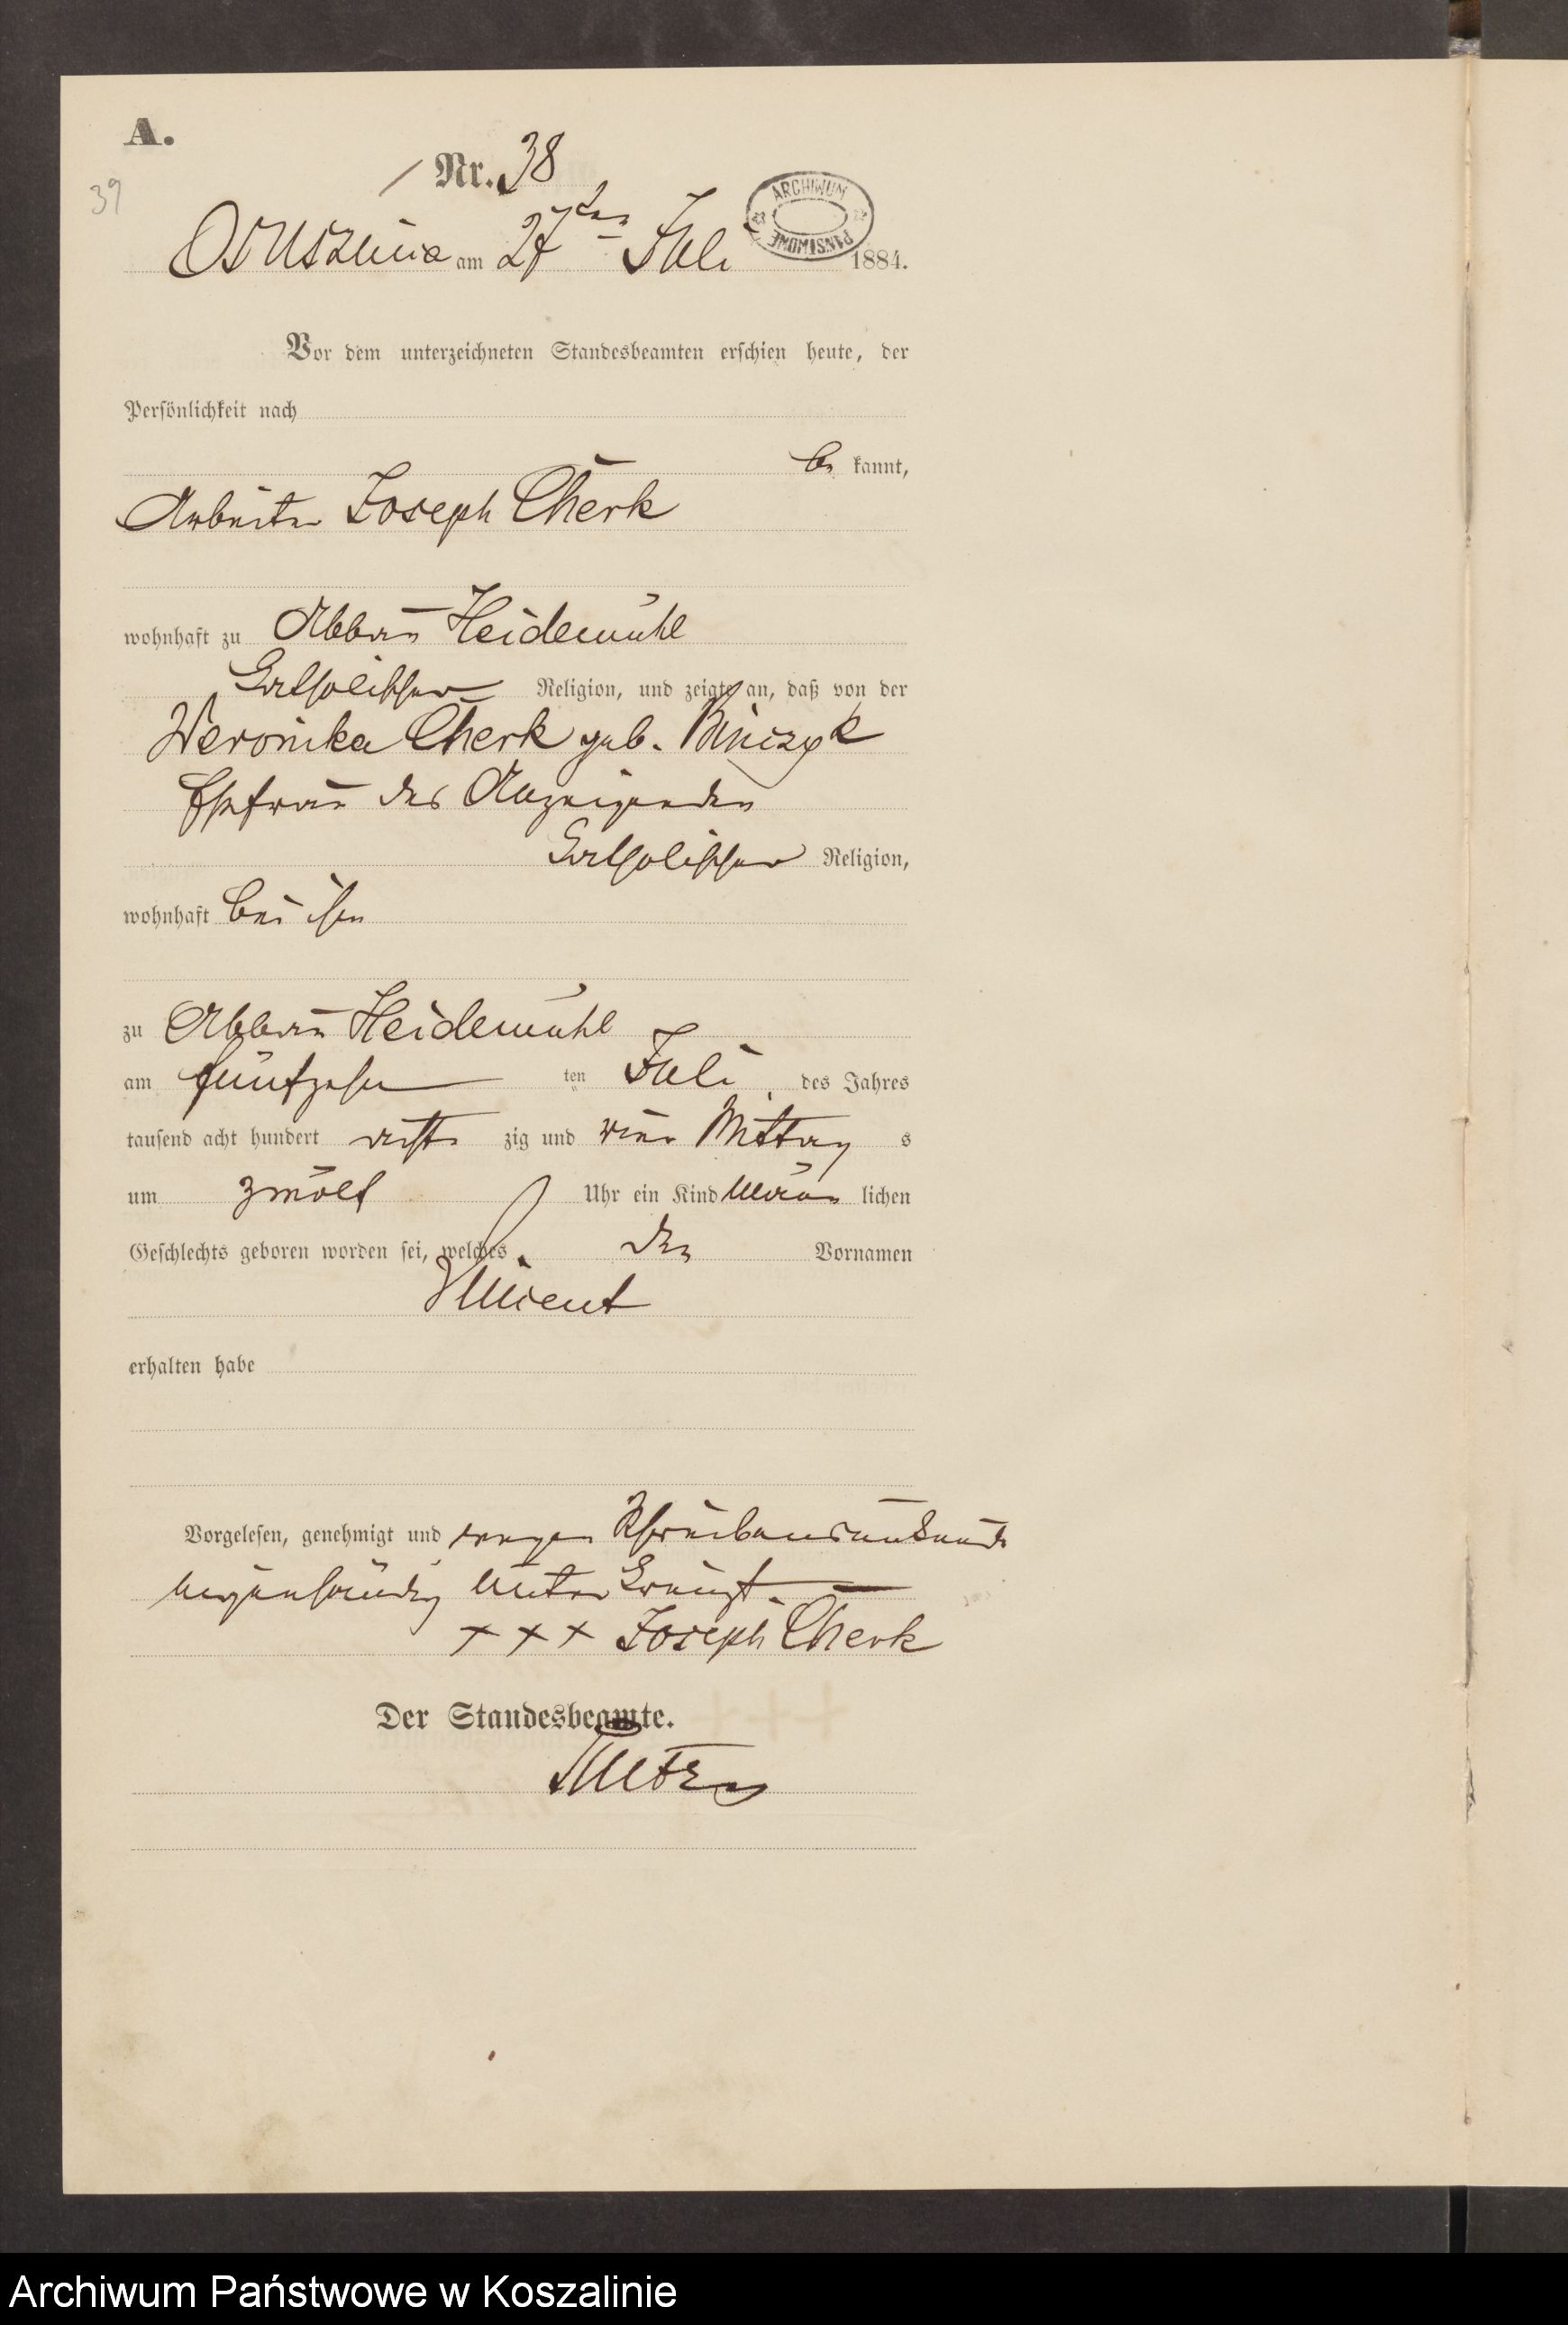 A.
Nr. 38
39
Osuszniza am 27ten Juli 1884.
ARCHIWUM PAŃSTWOWE
Vor dem unterzeichneten Standesbeamten erschien heute, der
Persönlichkeit nach
be kannt,
Arbeiter Joseph Cherk
wohnhaft zu Abbau Heidemühl
katholischer Religion, und zeigte an, daß von der
Weronika Cherk geb. Binczyk
Ehefrau des Anzeigenden
katholischer Religion,
wohnhaft bei ihm
zu Abbau Heidemühl
am fünfzehn ten Juli des Jahres
tausend acht hundert acht zig und vier Mittag s
um zwölf Uhr ein Kind männ lichen
Geschlechts geboren worden sei, welches den Vornamen
Vincent
erhalten habe
Vorgelesen, genehmigt und wegen Schreibensunkunde
eigenhändig unterkreuzt.
+++ Joseph Cherk
Der Standesbeamte.
Archiwum Państwowe w Koszalinie